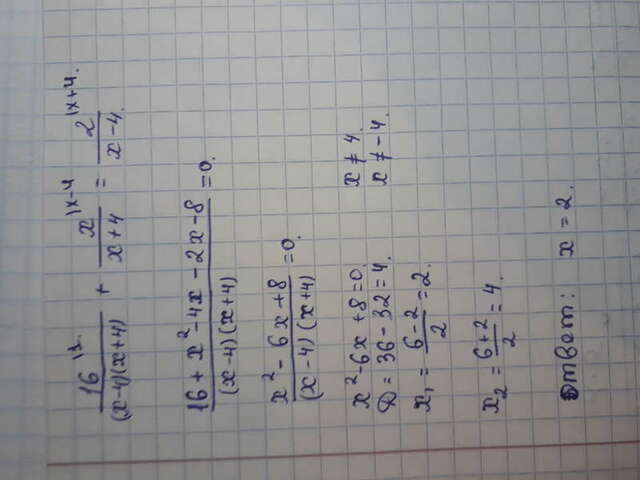 16^{|1.}/((x-4)(x+4)) + x^{|x-4}/(x+4) = 2^{|x+4.}/(x-4.)
(16 + x² - 4x - 2x - 8)/((x-4)(x+4)) = 0.
(x² - 6x + 8)/((x-4)(x+4)) = 0.
x² - 6x + 8 = 0. x ≠ 4.
D = 36 - 32 = 4. x ≠ -4.
x₁ = (6-2)/2 = 2.
x₂ = (6+2)/2 = 4.
Ответ: x = 2.